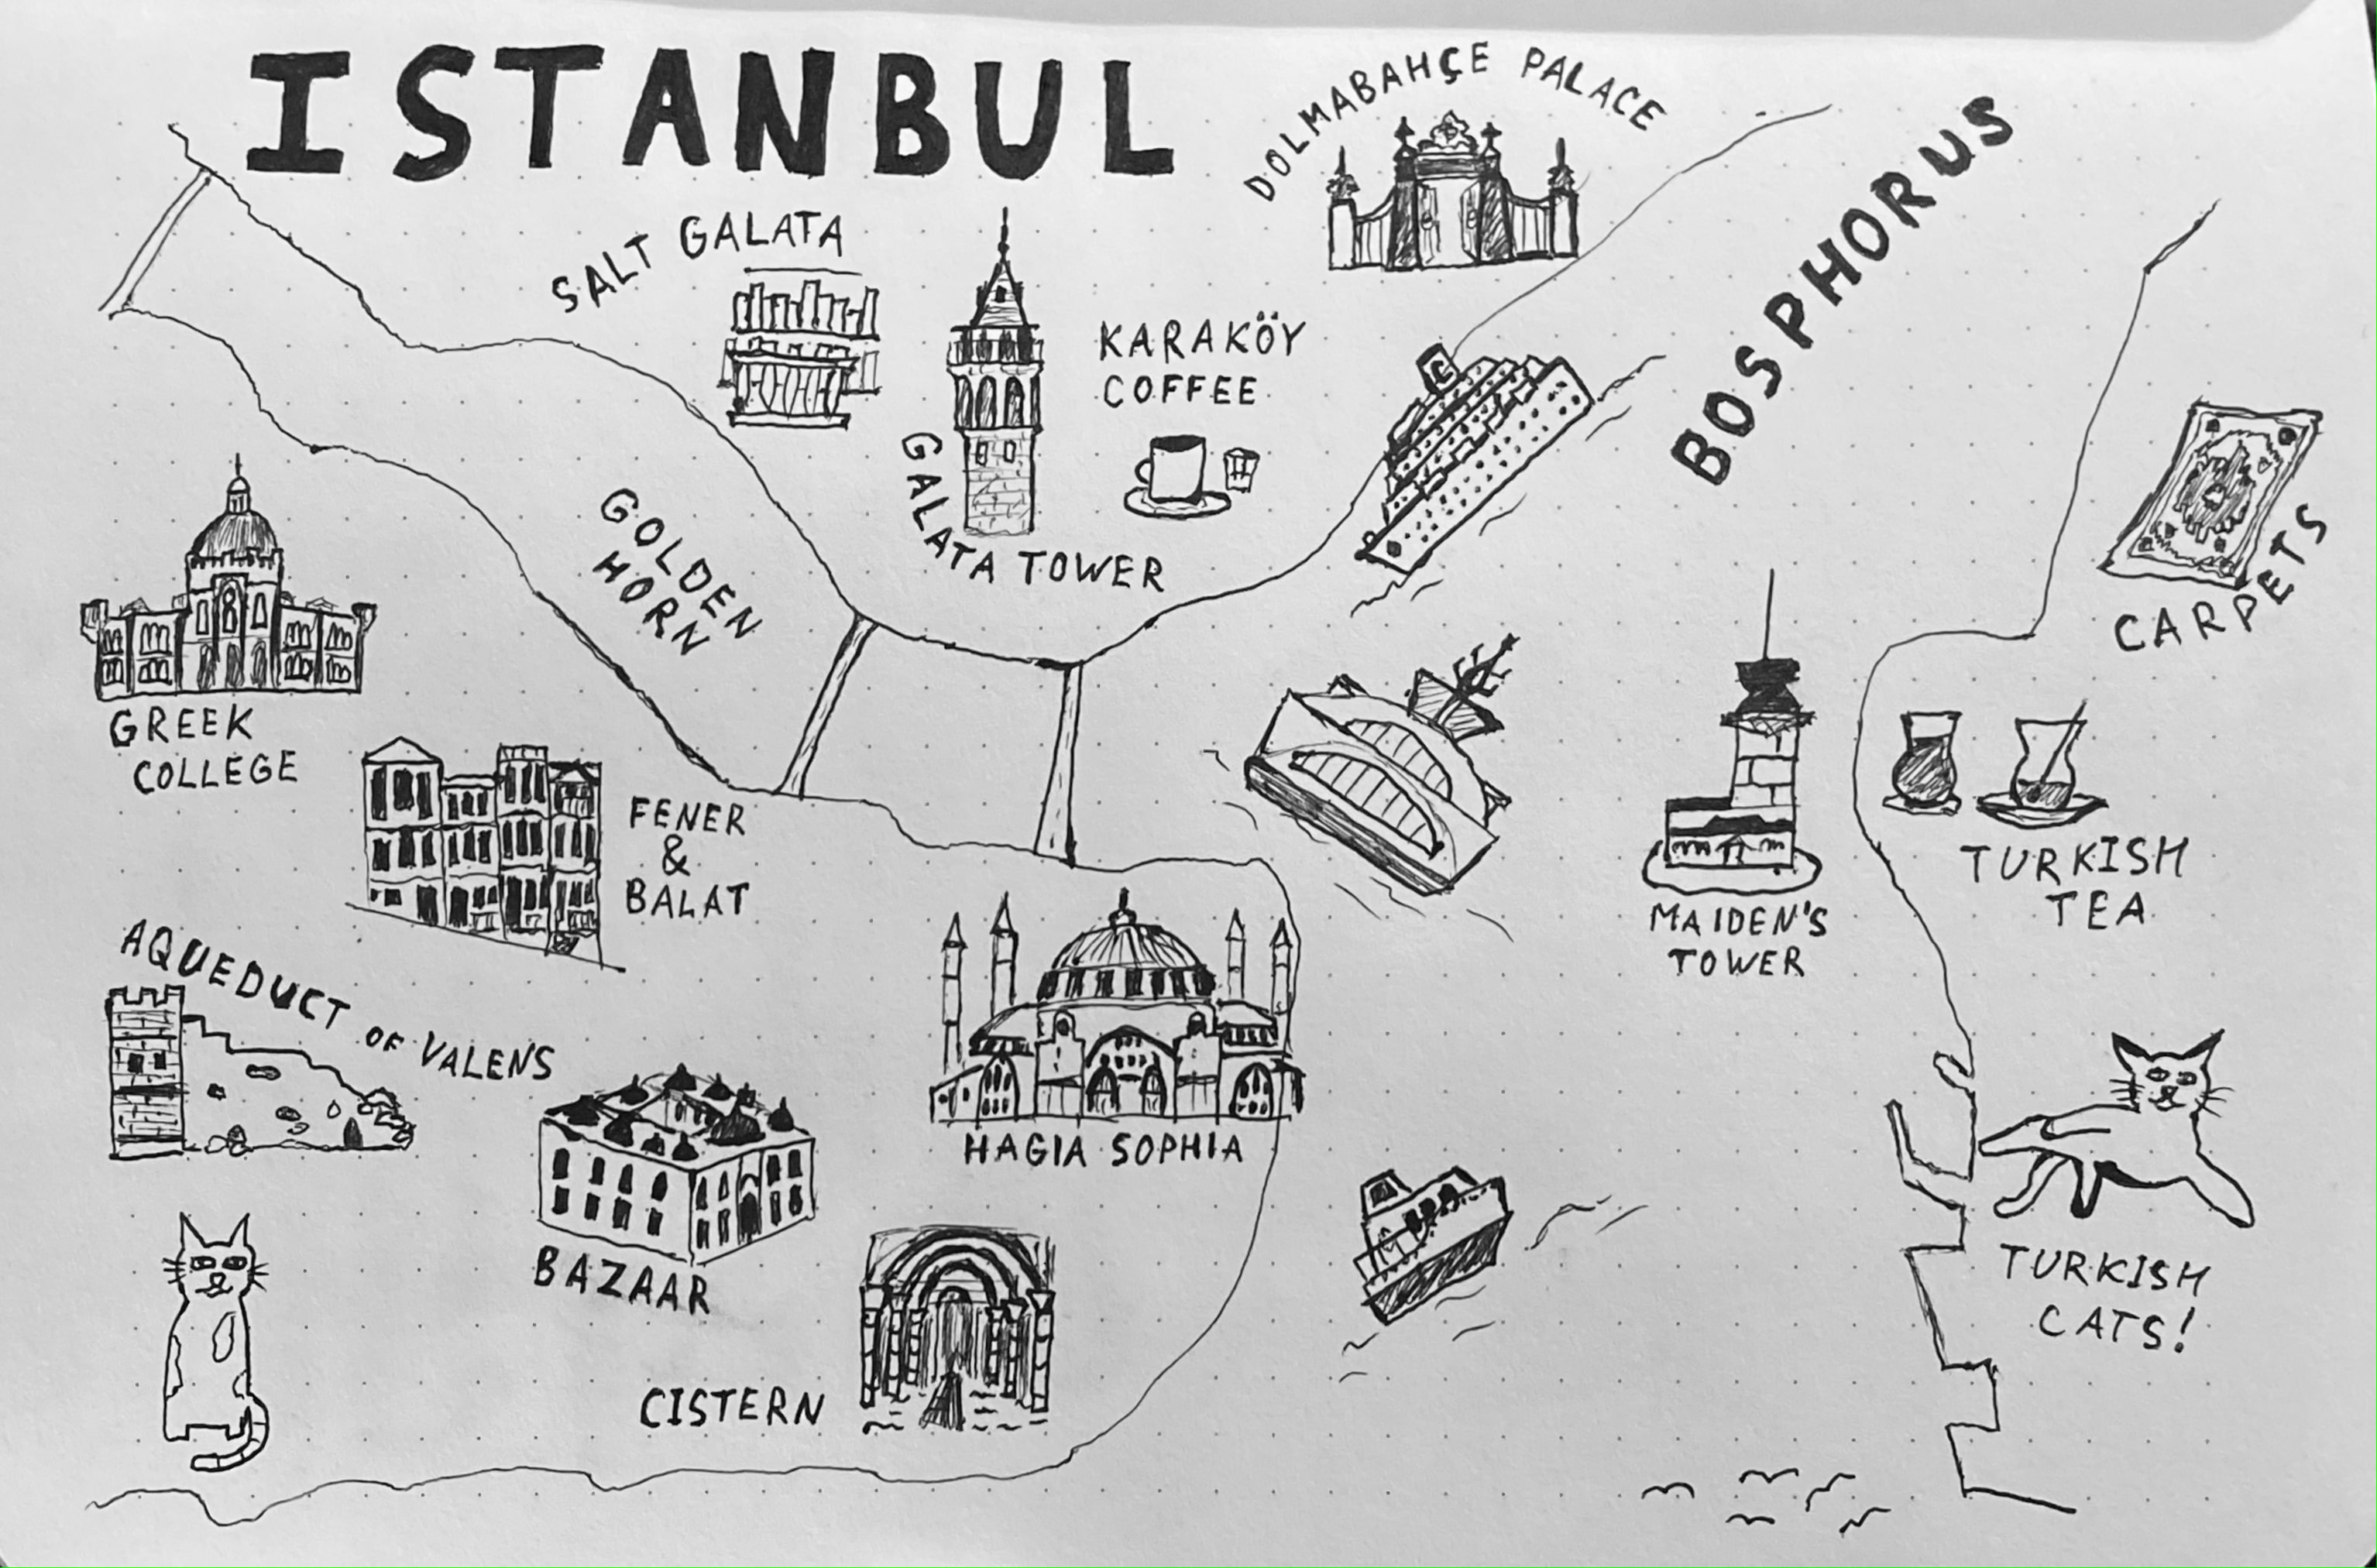 ISTANBUL
DOLMABAHÇE PALACE
BOSPHORUS
SALT GALATA
KARAKÖY
COFFEE
GALATA TOWER
GOLDEN
HORN
CARPETS
GREEK
COLLEGE
FENER
&
BALAT
MAIDEN'S
TOWER
TURKISH
TEA
AQUEDUCT OF VALENS
HAGIA SOPHIA
BAZAAR
TURKISH
CATS!
CISTERN